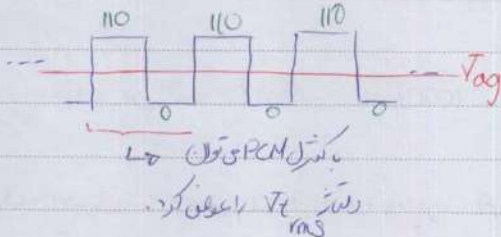 110 110 110
Vag
0 0 0
با کنترل PCM می توان
ولتاژ Vt rms را عوض کرد.